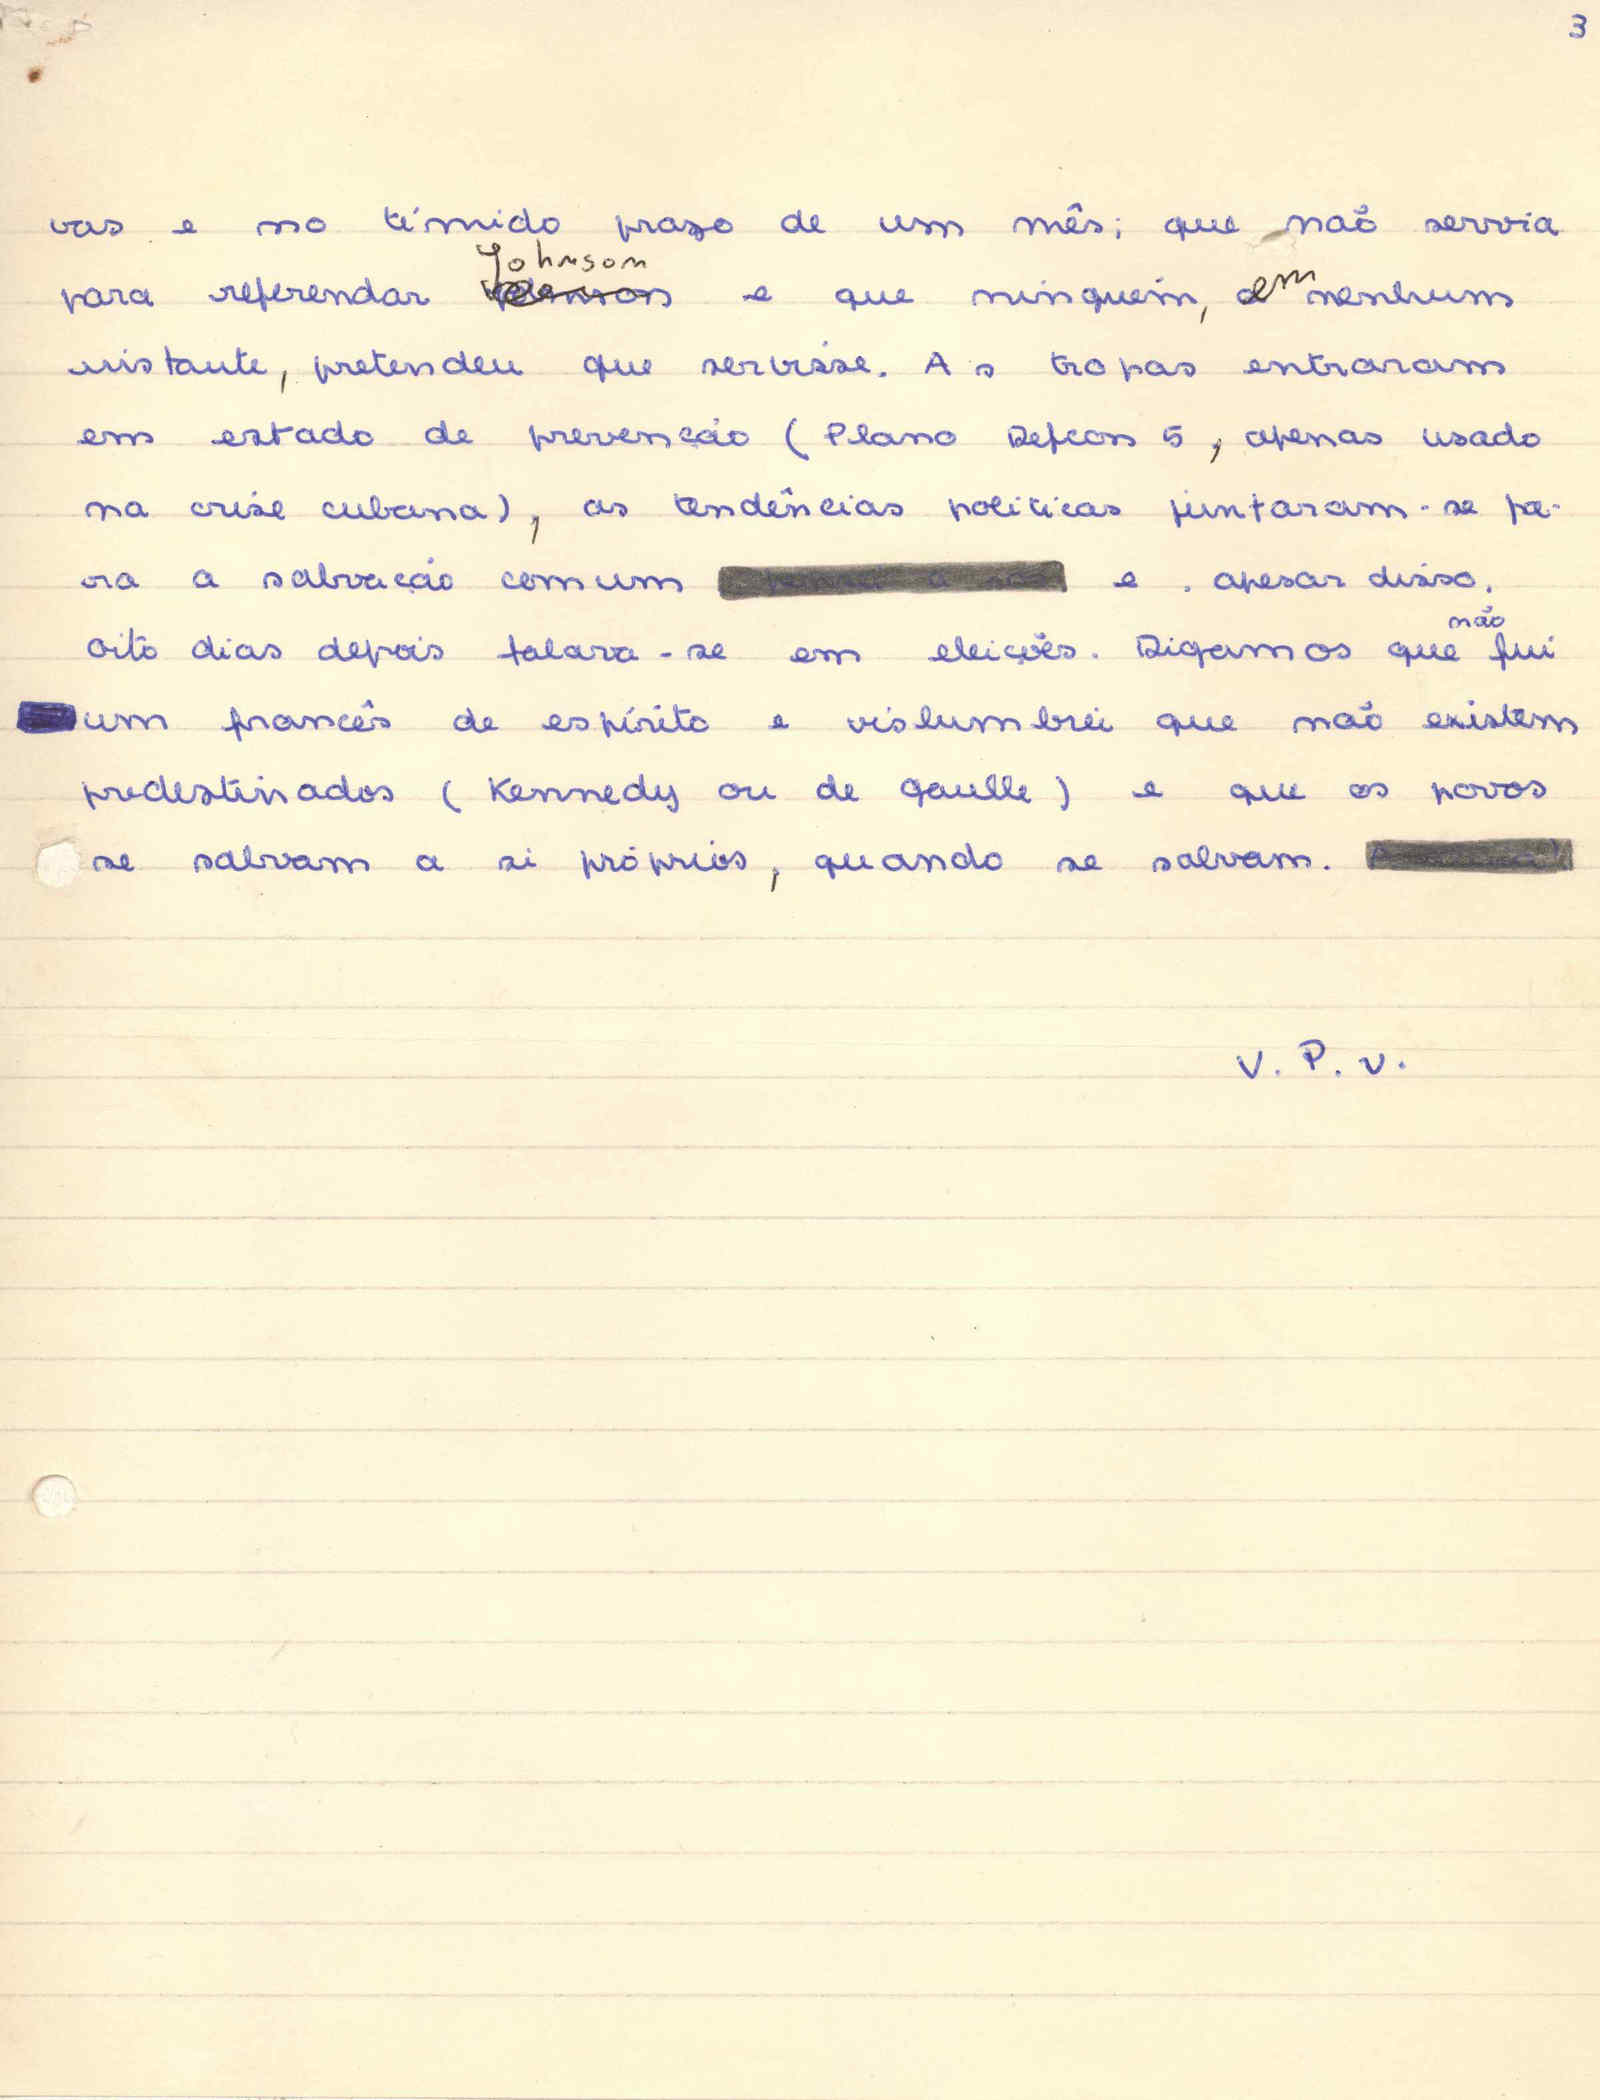 3
vas e no tímido prazo de um mês; que não servia
Johnson
para referendar e que ninguém, em nenhum
instante, pretendeu que servisse. As tropas entraram
em estado de prevenção (Plano Defcon 5, apenas usado
na crise cubana), as tendências políticas juntaram-se pa-
ra a salvação comum e, apesar disso,
não
oito dias depois falara-se em eleições. Digamos que fui
um francês de espírito e vislumbrei que não existem
predestinados (Kennedy ou de Gaulle) e que os povos
se salvam a si próprios, quando se salvam.
V. P. V.